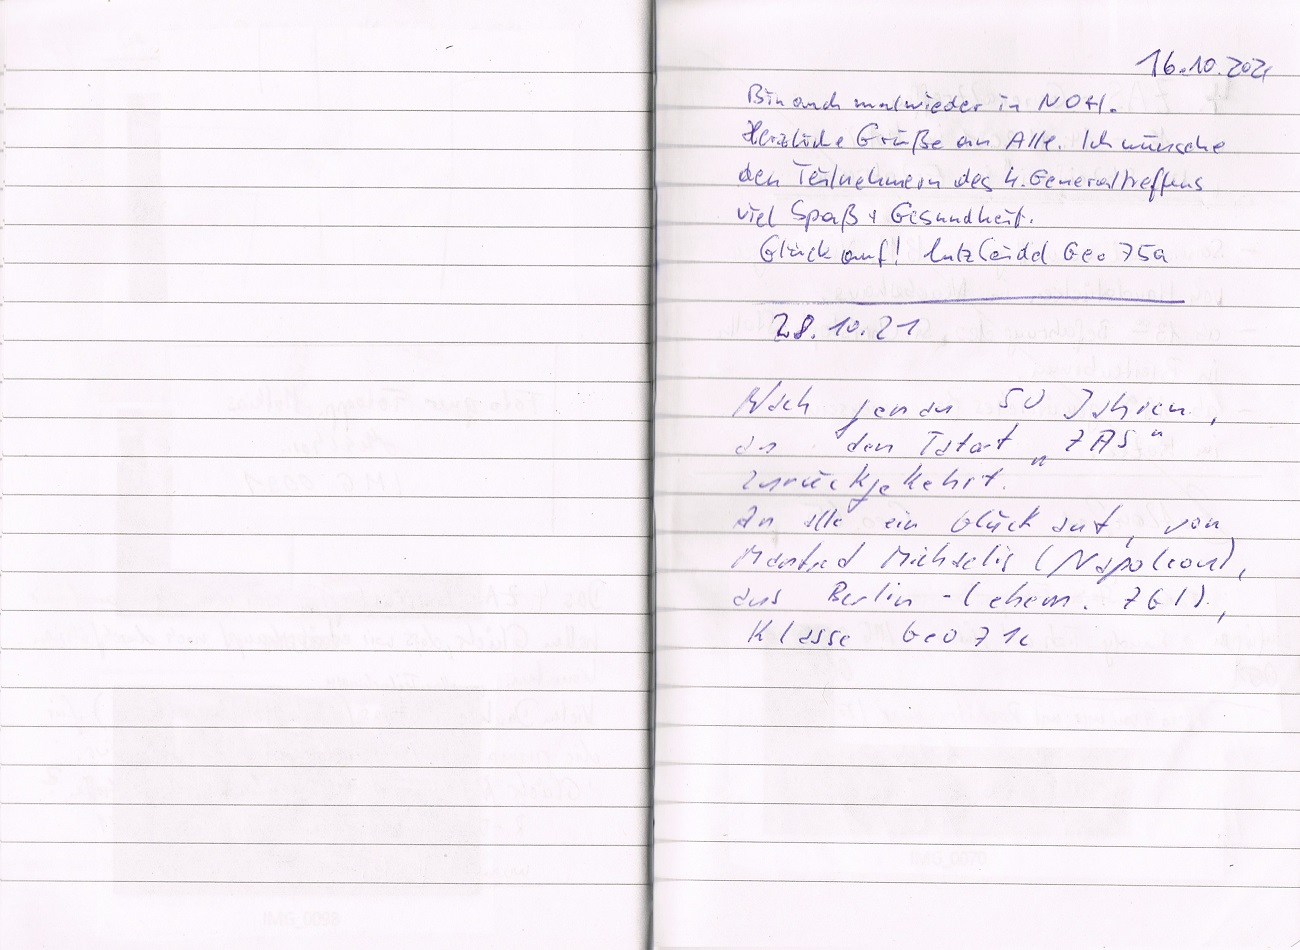 16.10.2021
Bin auch mal wieder in NOH.
Herzliche Grüße an Alle. Ich wünsche
den Teilnehmern des 4. Generaltreffens
viel Spaß + Gesundheit.
Glück auf! Lutz Geo 75a
28.10.21
Nach genau 50 Jahren,
an den Tatort „ZAS“
zurückgekehrt.
An alle ein Glück auf, von
Manfred Michaelis (Napoleon),
aus Berlin - (ehem. ZGI).,
Klasse Geo 71c